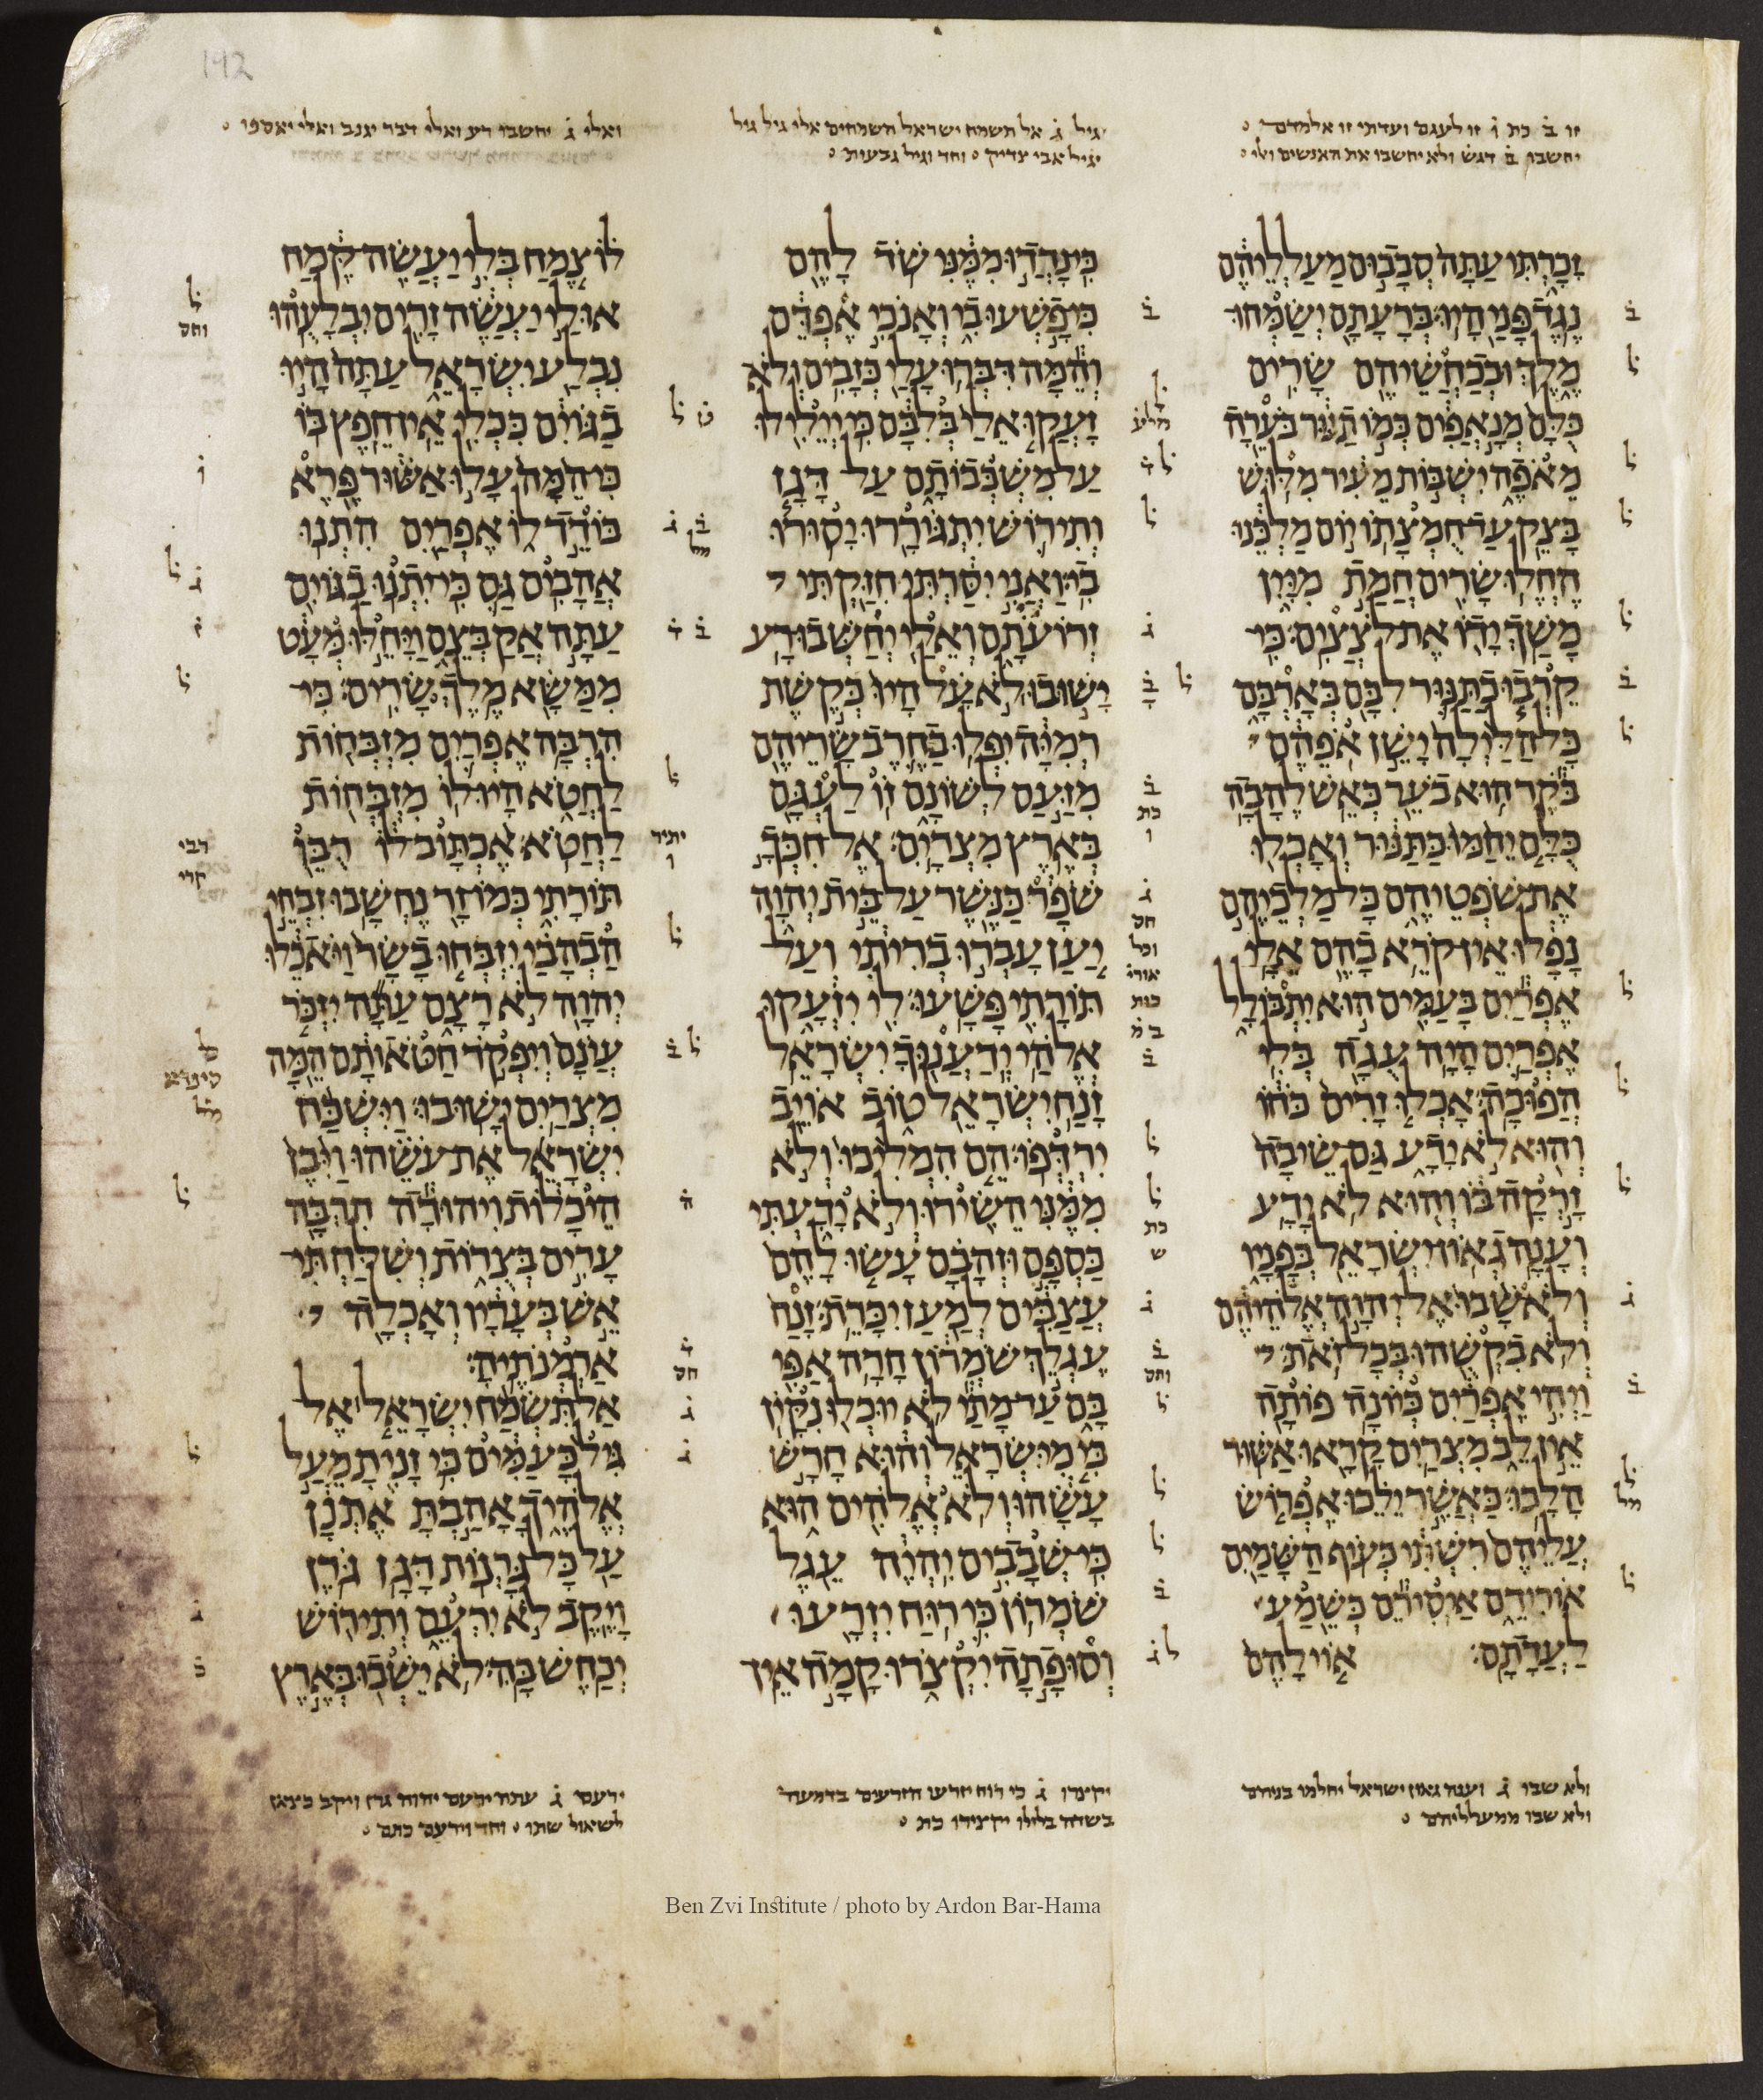 זו ב כת ו זו לעגם ועדתי זו אלמדם
יחשבו ב דגש ולא יחשבו את האנשים ולי
יגיל ג אל תשמח ישראל השמחים אלי גיל גיל
יגיל אבי צדיק וחד וגיל גבעות
ואלי ג יחשבו רע ואלי דבר יגנב ואלי יאספו
זכרתי עתה סבבום מעלליהם
נגד פני היו ברעתם ישמחו
מלך ובכחשיהם שרים
כלם מנאפים כמו תנור בערה
מאפה ישבות מעיר מלוש
בצק עד חמצתו יום מלכנו
החלו שרים חמת מיין
משך ידו את לצצים כי
קרבו כתנור לבם בארבם
כל הלילה ישן אפהם
בקר הוא בער כאש להבה
כלם יחמו כתנור ואכלו
את שפטיהם כל מלכיהם
נפלו אין קרא בהם אלי
אפרים בעמים הוא יתבולל
אפרים היה עגה בלי
הפוכה אכלו זרים כחו
והוא לא ידע גם שיבה
זרקה בו והוא לא ידע
וענה גאון ישראל בפניו
ולא שבו אל יהוה אלהיהם
ולא בקשהו בכל זאת
ויהי אפרים כיונה פותה
אין לב מצרים קראו אשור
הלכו כאשר ילכו אפרוש
עליהם רשתי כעוף השמים
אורידם איסירם כשמע
לעדתם אוי להם
כי נדדו ממני שד להם
כי פשעו בי ואנכי אפדם
והמה דברו עלי כזבים ולא
זעקו אלי בלבם כי יילילו
על משכבותם על דגן
ותירוש יתגוררו יסורו
בי ואני יסרתי חזקתי
זרועתם ואלי יחשבו רע
ישובו לא על היו כקשת
רמיה יפלו בחרב שריהם
מזעם לשונם זו לעגם
בארץ מצרים אל חכך
שפר כנשר על בית יהוה
יען עברו בריתי ועל
תורתי פשעו לי יזעקו
אלהי ידענוך ישראל
זנח ישראל טוב אויב
ירדפו הם המליכו ולא
ממני השירו ולא ידעתי
כספם וזהבם עשו להם
עצבים למען יכרת זנח
עגלך שמרון חרה אפי
בם עד מתי לא יוכלו נקין
כי מישראל והוא חרש
עשהו ולא אלהים הוא
כי שבבים יהיה עגל
שמרון כי רוח יזרעו
וסופתה יקצרו קמה אין
לו צמח בלי יעשה קמח
אולי יעשה זרים יבלעהו
נבלע ישראל עתה היו
בגוים ככלי אין חפץ בו
כי המה עלו אשור פרא
בודד לו אפרים התנו
אהבים גם כי יתנו בגוים
עתה אקבצם ויחלו מעט
ממשא מלך שרים כי
הרבה אפרים מזבחות
לחטא היו לו מזבחות
לחטא אכתוב לו רבו
תורתי כמו זר נחשבו זבחי
הבהבי יזבחו בשר ויאכלו
יהוה לא רצם עתה יזכר
עונם ויפקד חטאותם המה
מצרים ישובו וישכח
ישראל את עשהו ויבן
היכלות ויהודה הרבה
ערים בצרות ושלחתי
אש בעריו ואכלה
ארמנתיה
אל תשמח ישראל אל
גיל כעמים כי זנית מעל
אלהיך אהבת אתנן
על כל גרנות דגן גרן
ויקב לא ירעם ותירוש
יכחש בה לא ישבו בארץ
ולא שבו ג וענה גאון ישראל יחלמו בניהם
ולא שבו ממעלליהם
יקצרו ג כי רוח יזרעו הזרעים בדמעה
בשדה בלילו יקצירו כת
ירעם ג עתה ירעם יהוה גרן ויקב כצאן
לשאול שתו וחד וירעם כתם
Ben Zvi Institute / photo by Ardon Bar-Hama